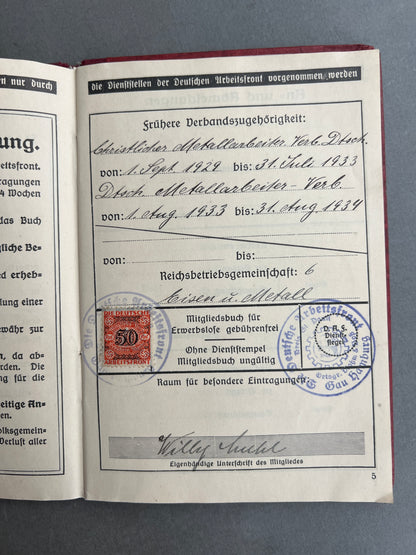 en nur durch
ung.
eitsfront.
tragungen
4 Wochen
das Buch
gliche Be-
d erheb-
lung einer
währ zur
, da ab-
rden. Die
ng für die
eitige An-
olksgemein-
Verlust aller
die Dienststellen der Deutschen Arbeitsfront vorgenommen werden
Frühere Verbandszugehörigkeit:
Christlicher Metallarbeiter Verb. Dtsch.
von: 1. Sept. 1929 bis: 31. Juli 1933
Dtsch. Metallarbeiter-Verb.
von: 1. Aug. 1933 bis: 31. Aug. 1934
von: bis:
Reichsbetriebsgemeinschaft: 6
Eisen u. Metall
Die Deutsche Arbeitsfront
DIE DEUTSCHE
50
ARBEITSFRONT
Mitgliedsbuch für
Erwerbslose gebührenfrei
Ohne Dienststempel
Mitgliedsbuch ungültig
Deutsche Arbeitsfront
D. A. F.
Dienst-
siegel
Gau
Raum für besondere Eintragungen:
Willy
Eigenhändige Unterschrift des Mitgliedes
5